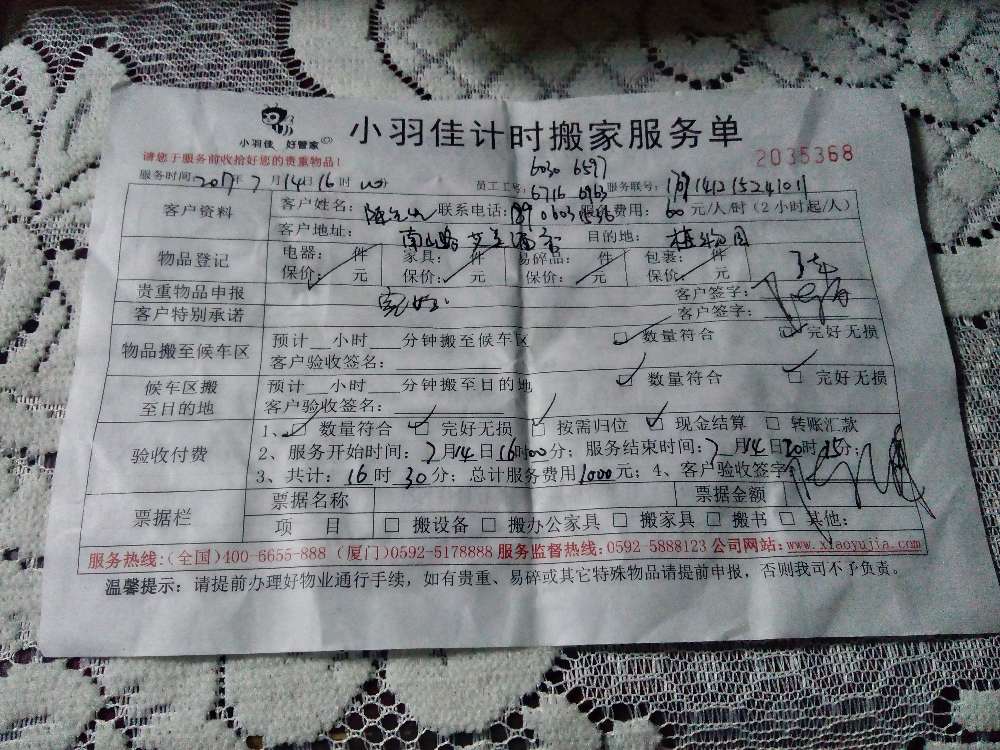 小羽佳 好管家
小羽佳计时搬家服务单
2035368
请您于服务前收拾好您的贵重物品！
服务时间 2017年 7月 14日 16时 00分
员工工号: 6030 6597
6716
服务联号:
客户资料
客户姓名: 联系电话: 服务费用: 60元/人/时（2小时起/人）
客户地址: 南山路 目的地: 植物园
物品登记
电器: 件 家具: 件 易碎品: 件 包裹: 件
保价: 元 保价: 元 保价: 元 保价: 元
贵重物品申报 客户签字:
客户特别承诺 完好 客户签字:
物品搬至候车区
预计__小时___分钟搬至候车区 ☑ 数量符合 ☑ 完好无损
客户验收签名:
候车区搬至目的地
预计__小时___分钟搬至目的地 ☑ 数量符合 ☑ 完好无损
客户验收签名:
验收付费
1、☑ 数量符合 ☑ 完好无损 ☑ 按需归位 ☑ 现金结算 □ 转账汇款
2、服务开始时间: 7月14日16时00分；服务结束时间: 7月14日20时15分；
3、共计: 16时30分；总计服务费用1000元；4、客户验收签字
票据栏
票据名称 票据金额
项 目 □ 搬设备 □ 搬办公家具 □ 搬家具 □ 搬书 □ 其他:
服务热线:(全国)400-6655-888 (厦门)0592-5178888 服务监督热线:0592-5888123 公司网站:www.xiaoyujia.com
温馨提示: 请提前办理好物业通行手续，如有贵重、易碎或其它特殊物品请提前申报，否则我司不予负责。